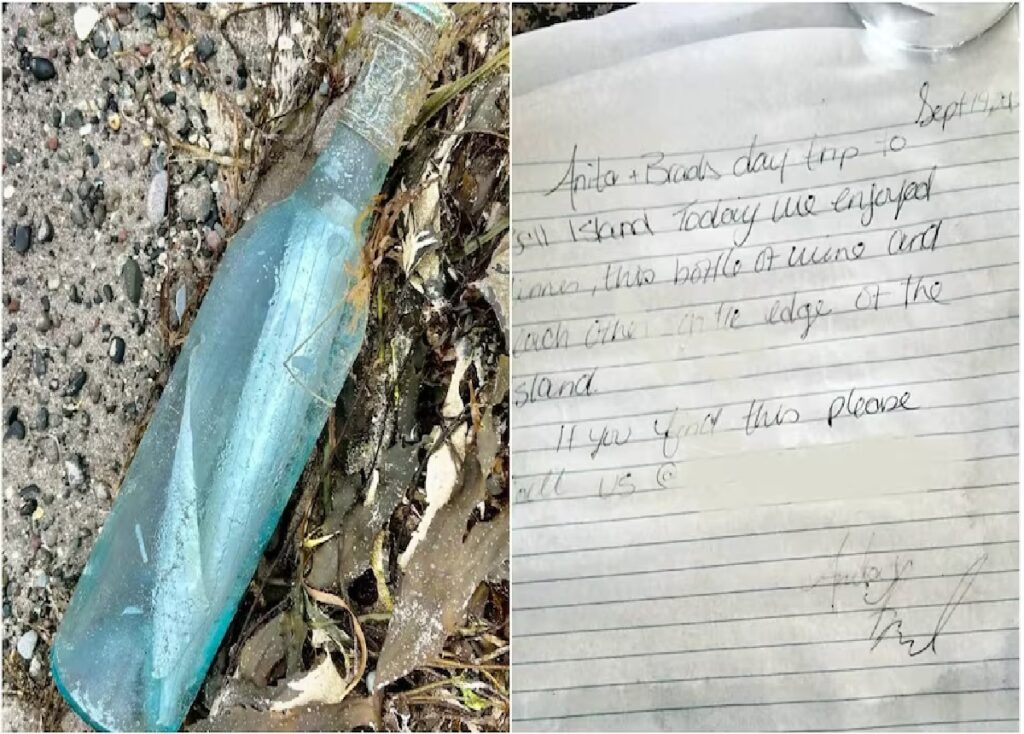 Sept 14,
Anita + Brad's day trip to
ell Island Today we enjoyed
inner, this bottle of wine and
each other on the edge of the
sland.
If you find this please
all us @
Anita &
Brad